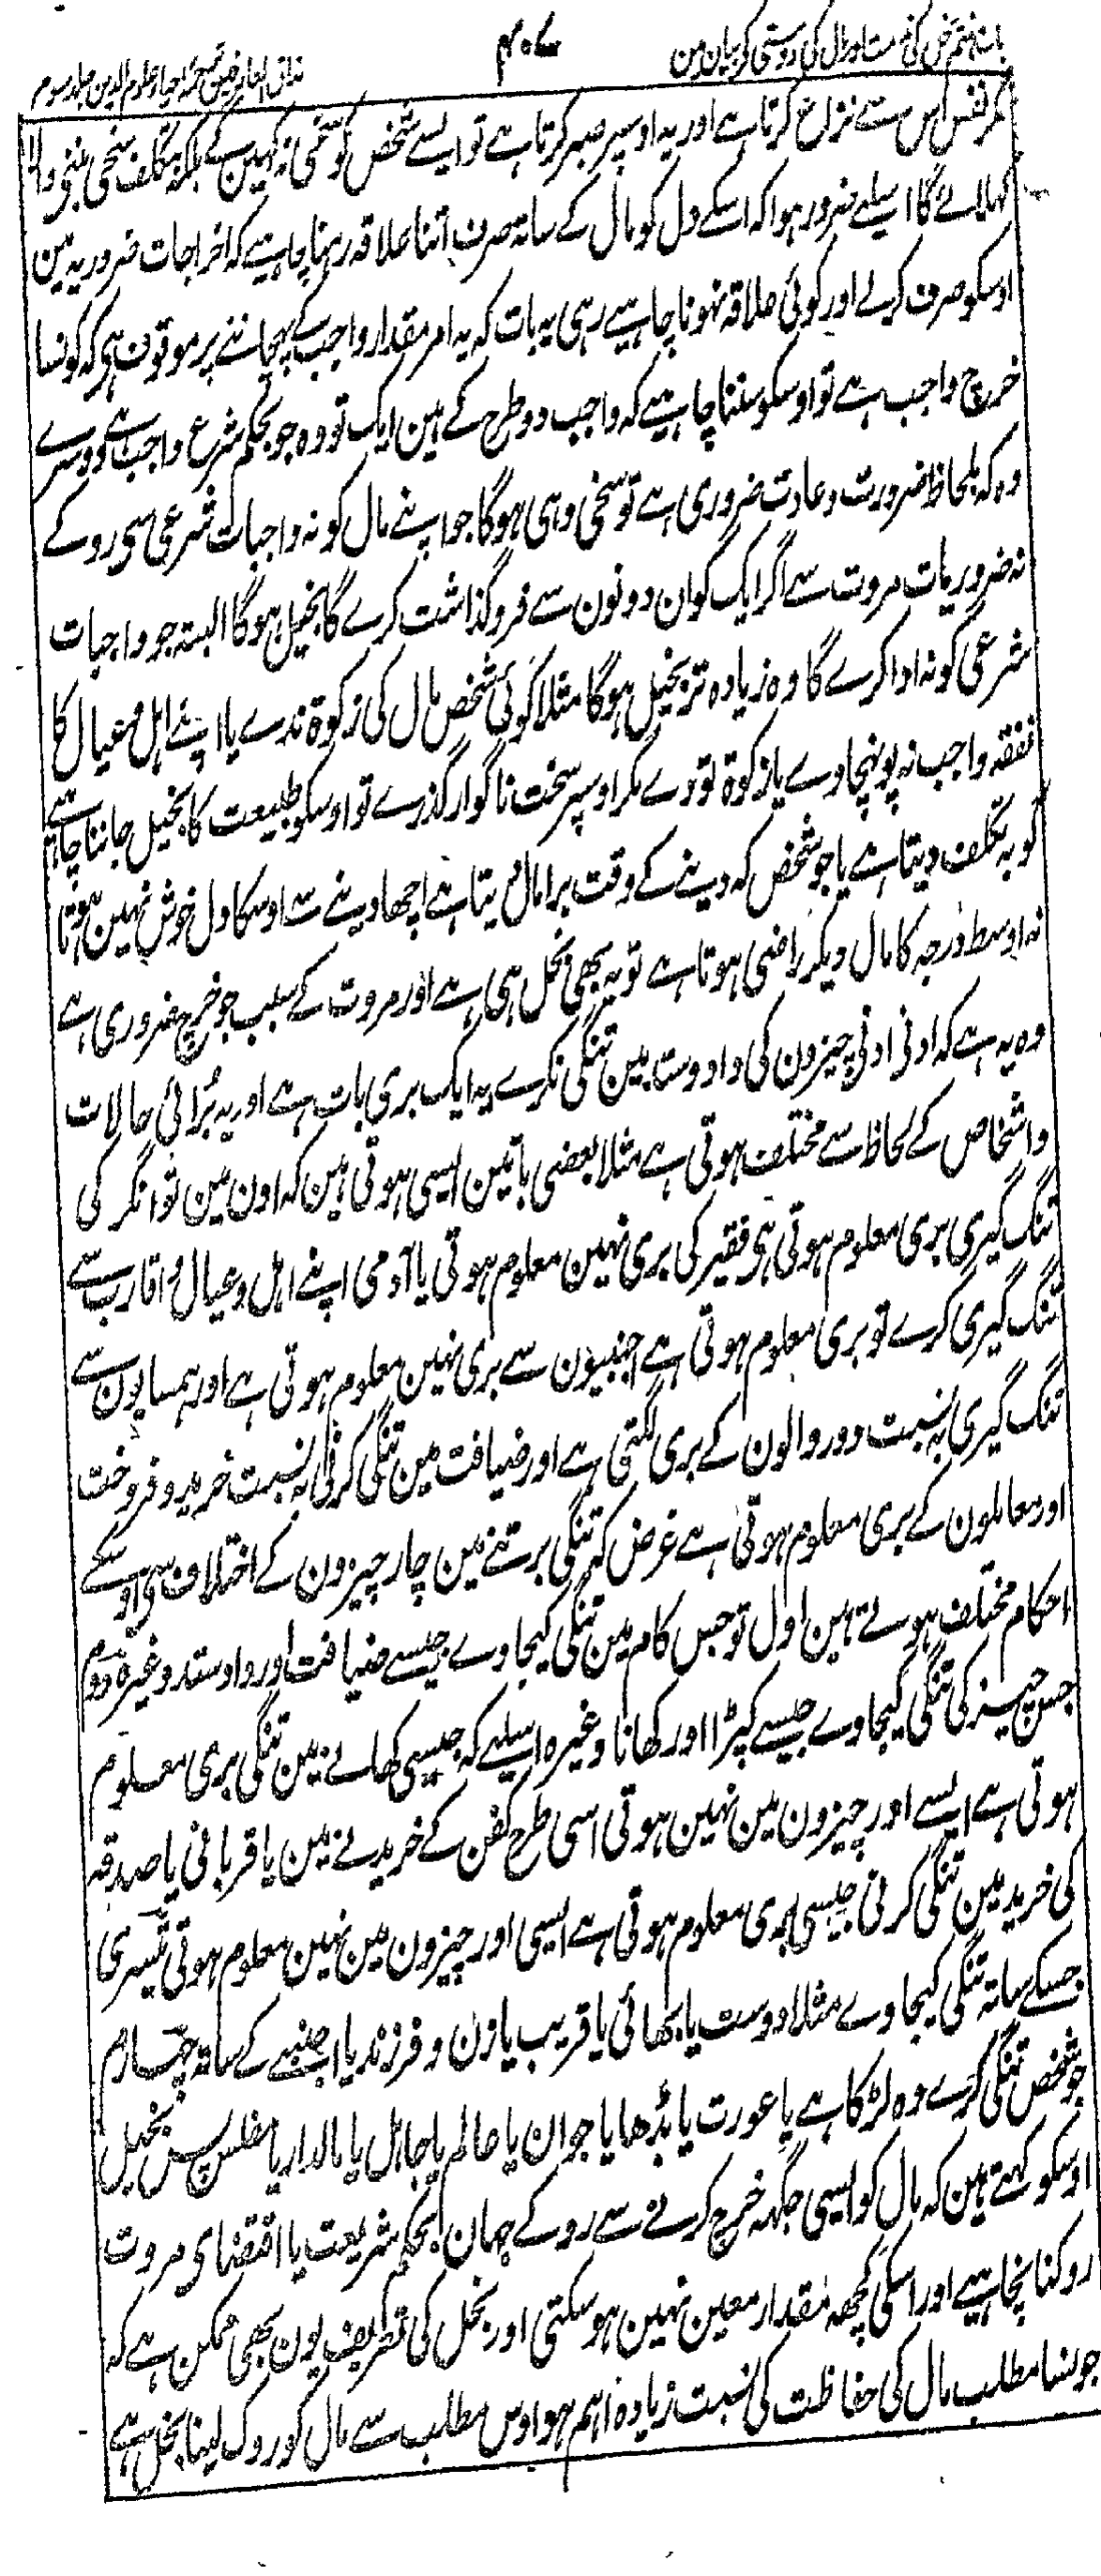 باب ہفتم بخل کی مذمت اور مال کی دوستی کے بیان مین
۴۰۷
مذاق العارفین ترجمہ احیاء علوم الدین جلد سوم
مگر نفس اس سے نزاع کرتا ہے اور یہ اوسپر صبر کرتا ہے تو ایسے شخص کو سخی نہ کہین گے بلکہ بتکلف سخی بننے والا
کہلائے گا اسلیے ضرور ہوا کہ اسکے دل کو مال کے ساتھ صرف اتنا علاقہ رہنا چاہیے کہ اخراجات ضروریہ مین
اوسکو صرف کرلے اور کوئی علاقہ نہونا چاہیے رہی یہ بات کہ یہ امر مقدار واجب کے پہچاننے پر موقوف ہی کہ کونسا
خرچ واجب ہے تو اوسکو سننا چاہیے کہ واجب دو طرح کے ہین ایک تو وہ جو بحکم شرع واجب ہے دوسرے
وہ کہ بلحاظ ضرورت و عادت ضروری ہے تو سخی وہی ہوگا جو اپنے مال کو نہ واجبات شرعی سی روکے
نہ ضروریات مروت سے اگر ایک کو ان دونون سے فروگذاشت کرے گا بخیل ہوگا البتہ جو واجبات
شرعی کو نہ ادا کرے گا وہ زیادہ تر بخیل ہوگا مثلا کوئی شخص مال کی زکوۃ ندے یا اپنے اہل و عیال کا
نفقہ واجب نہ پونہچاوے یا زکوۃ تو دے مگر اوسپر سخت ناگوار گذرے تو اوسکو طبیعت کا بخیل جاننا چاہیے
گو بہ تکلف دیتا ہے یا جو شخص کہ دینے کے وقت برا مال دیتا ہے اچھا دینے سے اوسکا دل خوش نہین ہوتا
نہ اوسط درجہ کا مال دیکر راضی ہوتا ہے تو یہ بھی بخل ہی ہے اور مروت کے سبب جو خرچ ضروری ہے
وہ یہ ہے کہ ادنی ادنی چیزون کی داد و ستد مین تنگی نکرے یہ ایک بری بات ہے اور یہ بُرائی حالات
و اشخاص کے لحاظ سے مختلف ہوتی ہے مثلا بعضی باتین ایسی ہوتی ہین کہ اون مین توانگر کی
تنگ گیری بری معلوم ہوتی ہی فقیر کی بری نہین معلوم ہوتی یا آدمی اپنے اہل و عیال و اقارب سے
تنگ گیری کرے تو بری معلوم ہوتی ہے اجنبیون سے بری نہین معلوم ہوتی ہے اور ہمسایون سے
تنگ گیری بہ نسبت دور والون کے بری لگتی ہے اور ضیافت مین تنگی کرنی بہ نسبت خرید و فروخت
اور معاملون کے بری معلوم ہوتی ہے غرض کہ تنگی برتنے مین چار چیزون کے اختلاف سی اوسکے
احکام مختلف ہوتے ہین اول تو جس کام مین تنگی کیجاوے جیسے ضیافت اور داد و ستد وغیرہ دوم
جس چیز کی تنگی کیجاوے جیسے کپڑا اور کھانا وغیرہ اسلیے کہ جیسی کھانے مین تنگی بری معلوم
ہوتی ہے ایسے اور چیزون مین نہین ہوتی اسی طرح کفن کے خریدنے مین یا قربانی یا صدقہ
کی خرید مین تنگی کرنی جیسی بری معلوم ہوتی ہے ایسی اور چیزون مین نہین معلوم ہوتی تیسری
جسکے ساتھ تنگی کیجاوے مثلا دوست یا بھائی یا قریب یا زن و فرزند یا اجنبی کے ساتھ چہارم
جو شخص تنگی کرے وہ لڑکا ہے یا عورت یا بڈھا یا جوان یا عالم یا جاہل یا مالدار یا مفلس پس بخیل
اوسکو کہتے ہین کہ مال کو ایسی جگہہ خرچ کرنے سے روکے جہان بحکم شریعت یا اقتضای مروت
روکنا نچاہیے اور اسکی کچھہ مقدار معین نہین ہو سکتی اور بخل کی تعریف یون بھی ممکن ہے کہ
جونسا مطلب مال کی حفاظت کی نسبت زیادہ اہم ہو اوس مطلب سے مال کو روک لینا بخل ہے